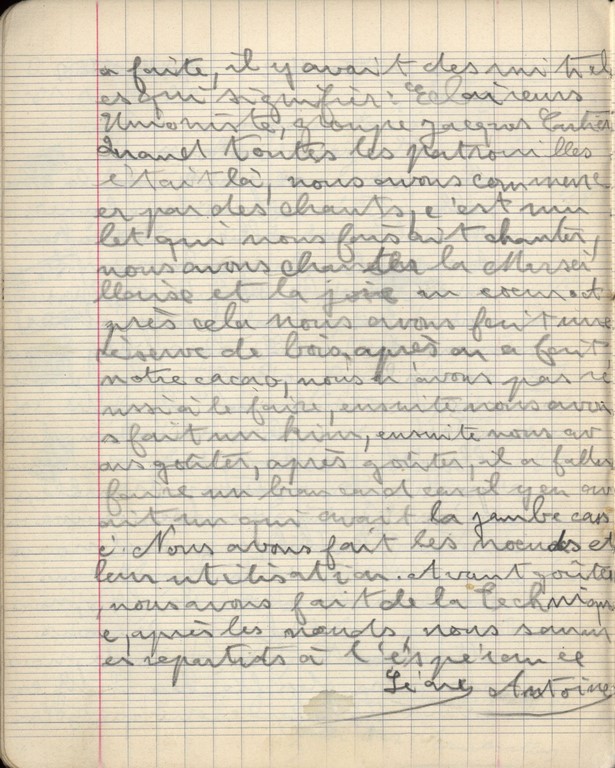 a faite, il y avait des initial
es qui signifier : Eclaireurs
Unioniste, groupe Jacques
Quand toutes les patrouilles
était là, nous avons commenc
er par des chants, c'est mu
let qui nous faisait chanter,
nous avons chanter la Marsei
llaise et la joie au coeur. A
près cela nous avons fait une
réserve de bois, après on a fait
notre cacao, nous n'avons pas ré
ussi à le faire, ensuite nous avon
s fait un kim, ensuite nous av
ons goûter, après goûter, il a fallu
faire un brancard car il y en av
ait un qui avait la jambe cass
é. Nous avons fait les noeuds et
leur utilisation. Avant goûter
, nous avons fait de la techniqu
e, après les noeuds, nous somm
es repartids à l'éspérance
Antoine